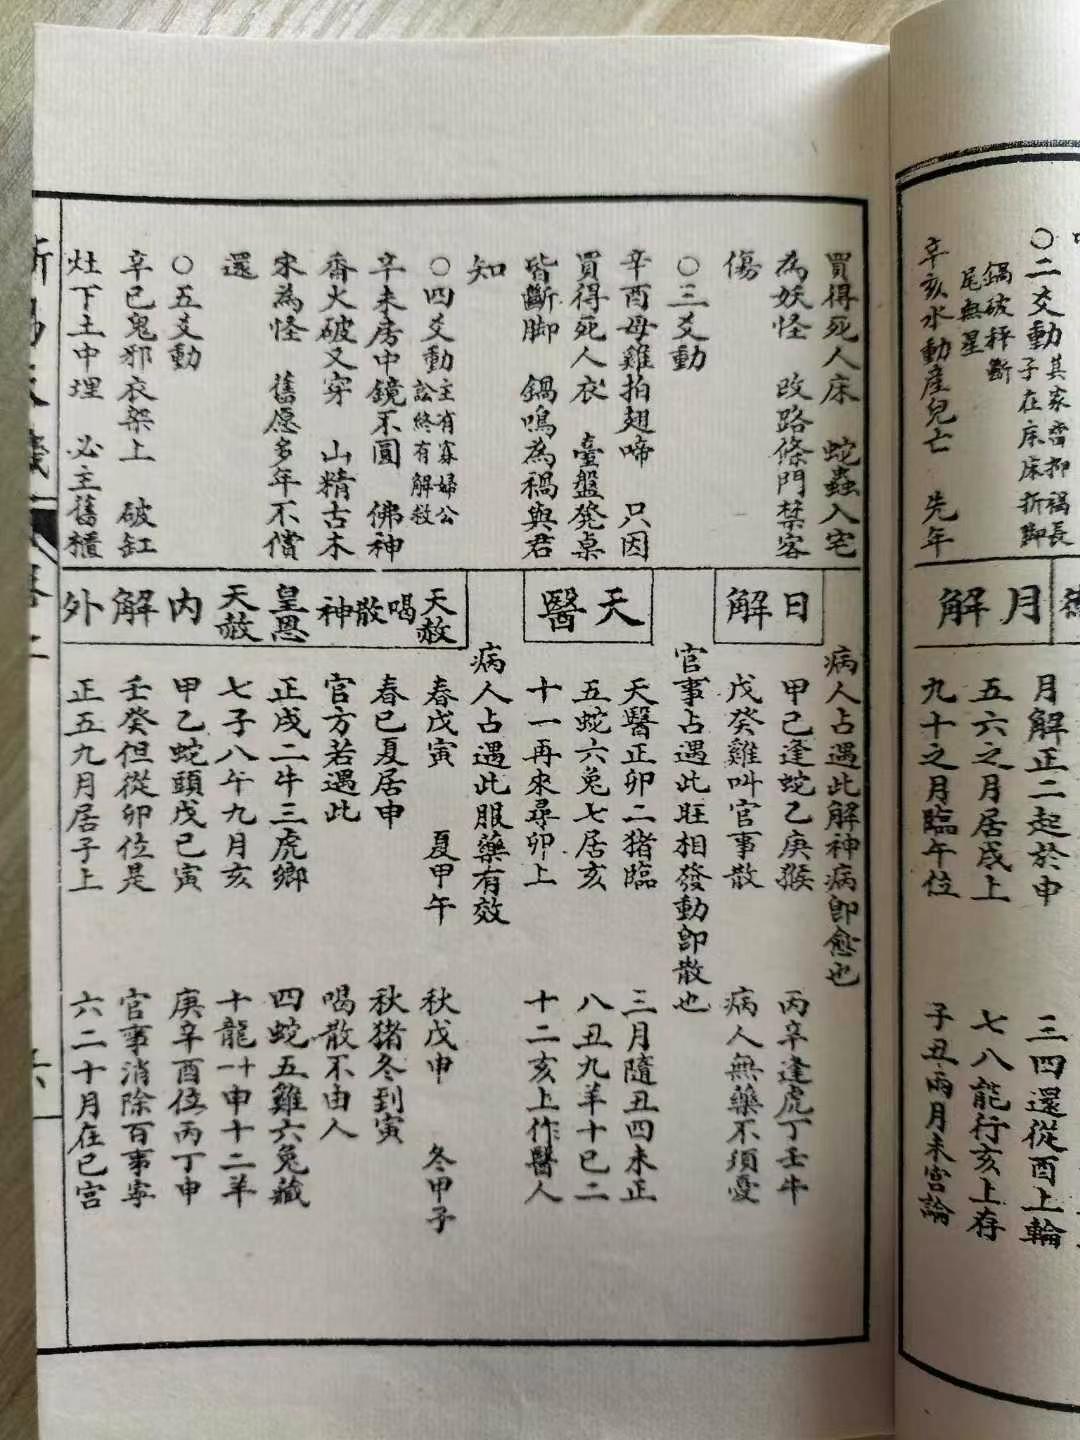 ○二爻動其家齋抑禍長
子在床床折脚
鍋破秤斷
尾無星
辛亥水動産兒亡　先年
買得死人床　蛇蟲入宅
為妖怪　改路條門禁客
傷
○三爻動
辛酉母雞拍翅啼　只因
買得死人衣　臺盤凳桌
皆斷脚　鍋鳴為禍與君
知
○四爻動主有寡婦公
訟終有解救
辛未房中鏡不圓　佛神
香火破又穿　山精古木
宋為怪　舊愿多年不償
還
○五爻動
辛巳鬼邪衣架上　破缸
灶下土中埋　必主舊櫃
月解
月解正二起於申　三四還從酉上輪
五六之月居戌上　七八能行亥上存
九十之月臨午位　子丑兩月未宮論
病人占遇此解神病卽愈也
日解
甲己逢蛇乙庚猴　丙辛逢虎丁壬牛
戊癸雞叫官事散　病人無藥不須憂
官事占遇此旺相發動卽散也
天醫
天醫正卯二猪臨　三月隨丑四未正
五蛇六兔七居亥　八丑九羊十巳二
十一再來尋卯上　十二亥上作醫人
病人占遇此服藥有效
天赦
春戊寅　夏甲午　秋戊申　冬甲子
喝散神
春巳夏居申　秋猪冬到寅
官方若遇此　喝散不由人
皇恩
天赦
正戌二牛三虎鄉　四蛇五雞六兔藏
七子八午九月亥　十龍十一申十二羊
內解
甲乙蛇頭戊己寅　庚辛酉位丙丁申
壬癸但從卯位是　官事消除百事寧
外
正五九月居子上　六二十月在巳宮